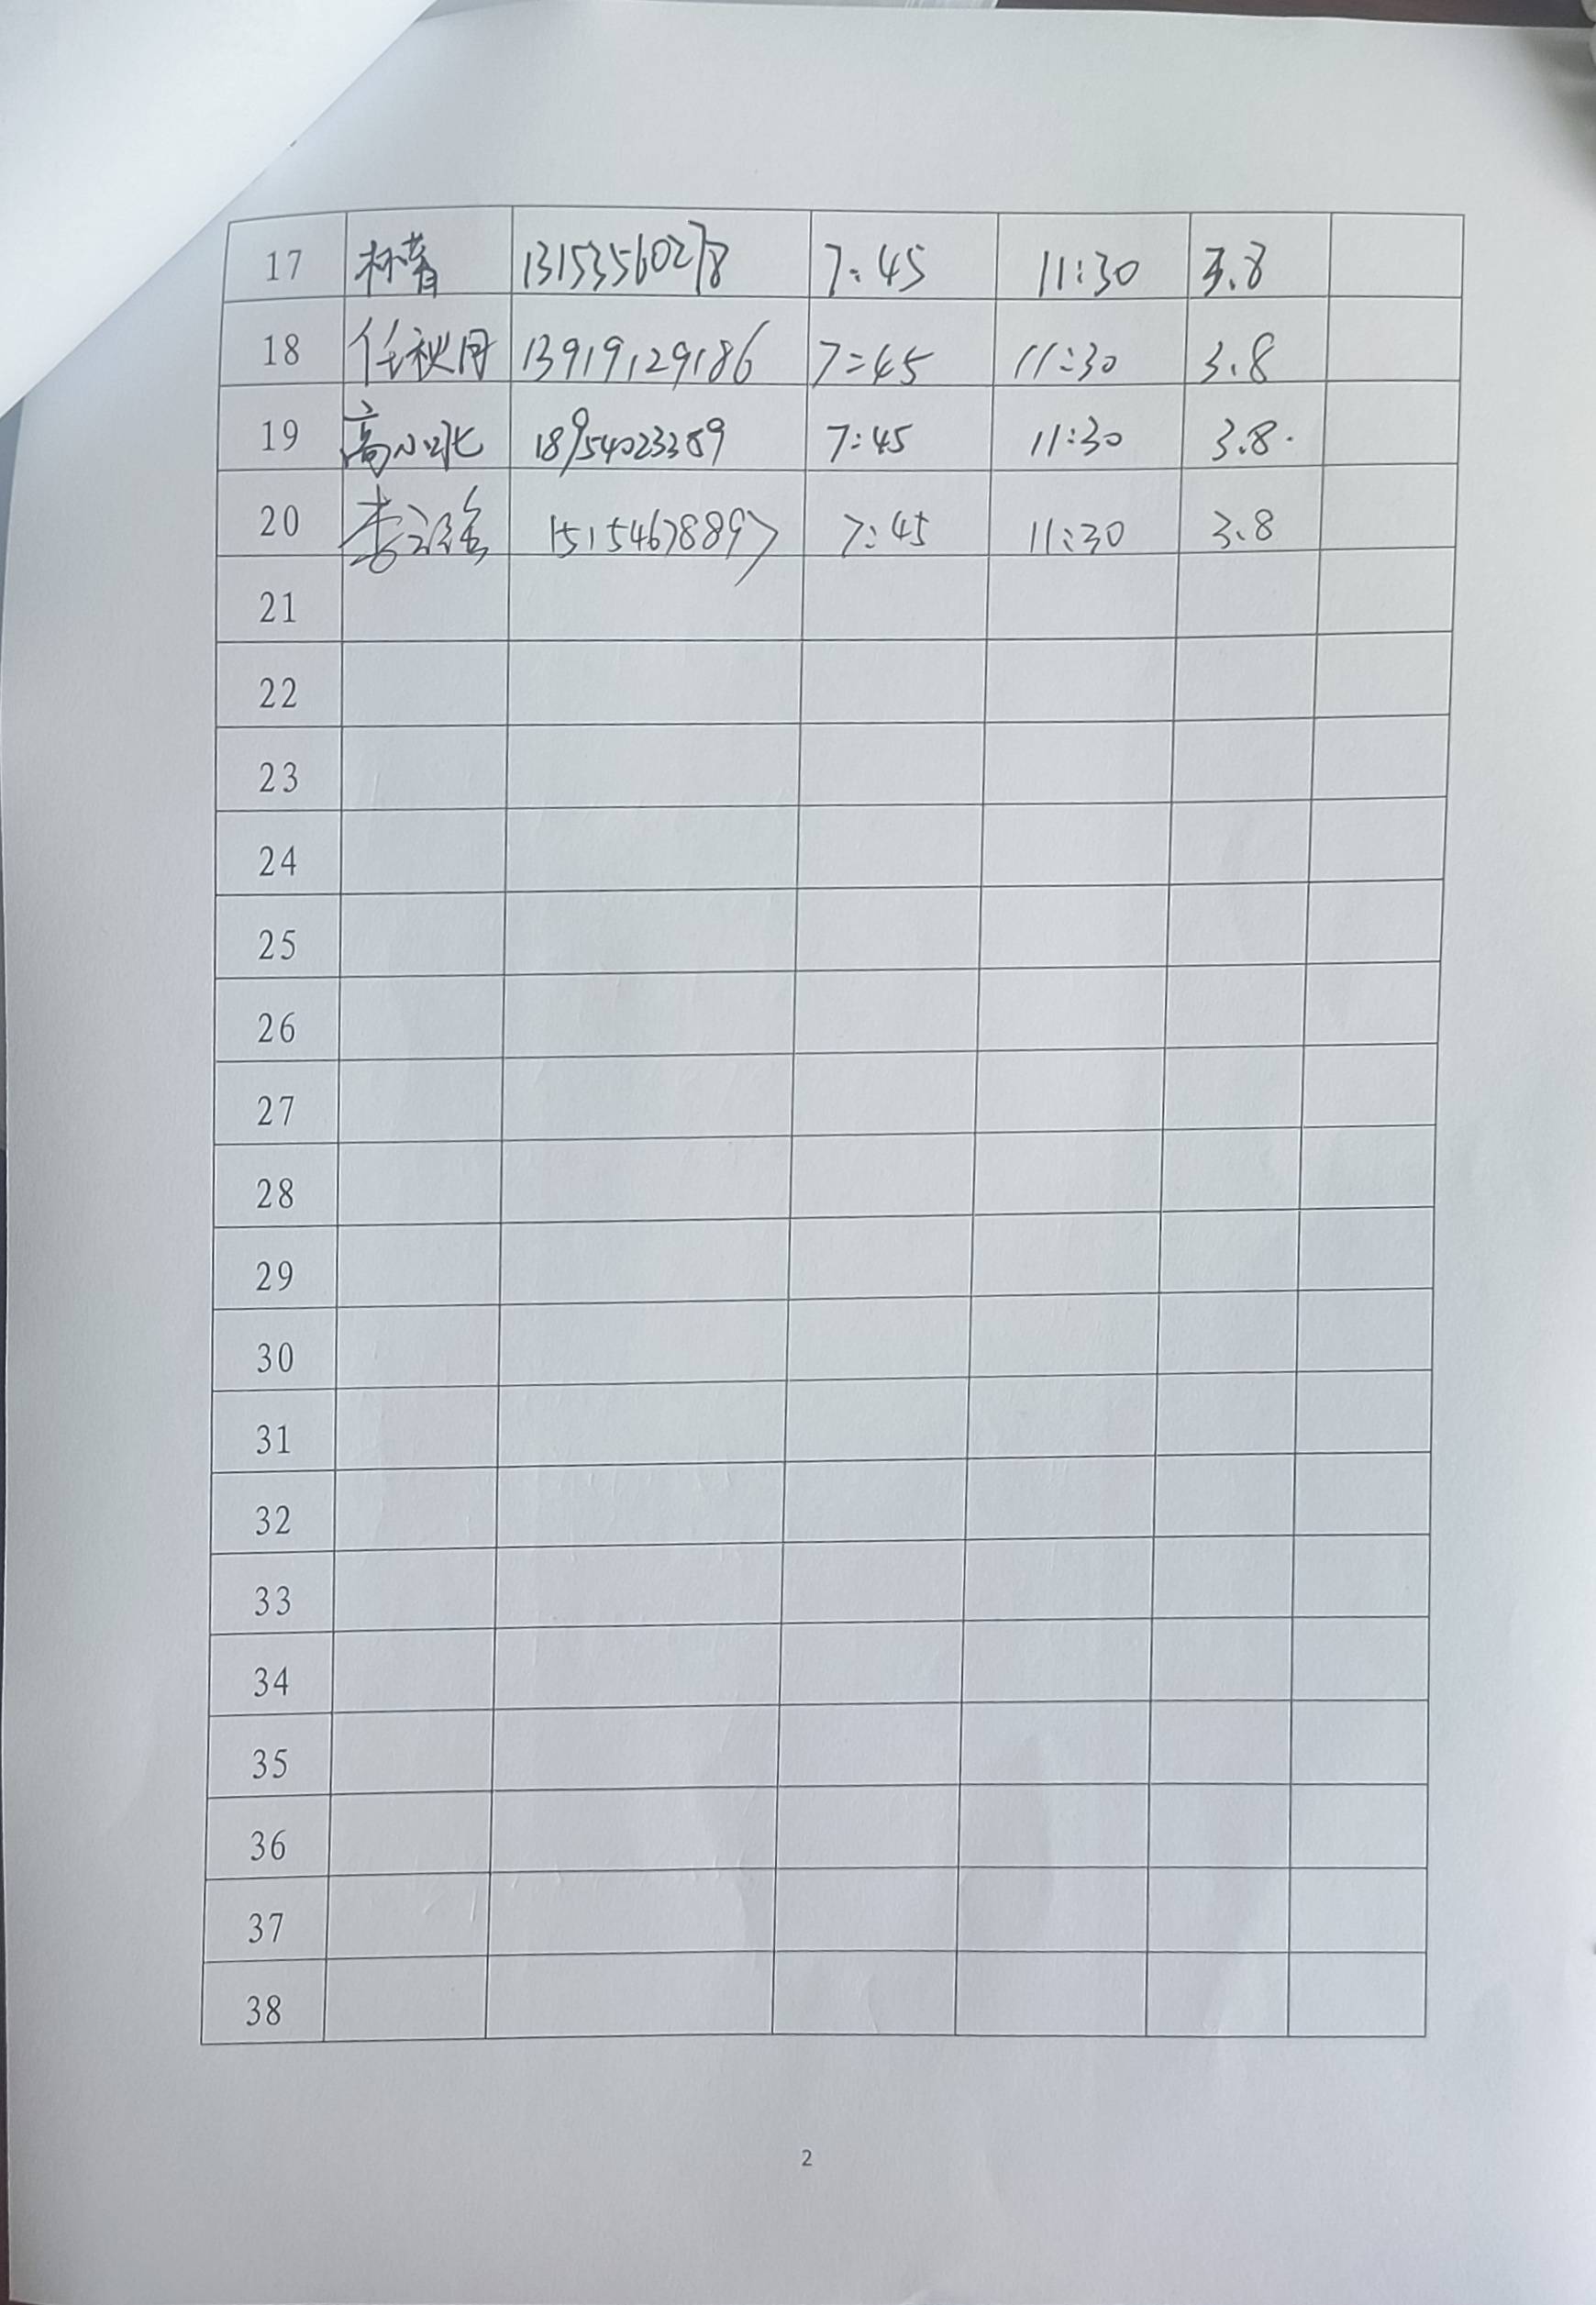 17 林菁 13153560278 7:45 11:30 3.8
18 任秋月 13919129186 7:45 11:30 3.8
19 高小 18954023389 7:45 11:30 3.8.
20 李 15154678897 7:45 11:30 3.8
21
22
23
24
25
26
27
28
29
30
31
32
33
34
35
36
37
38
2